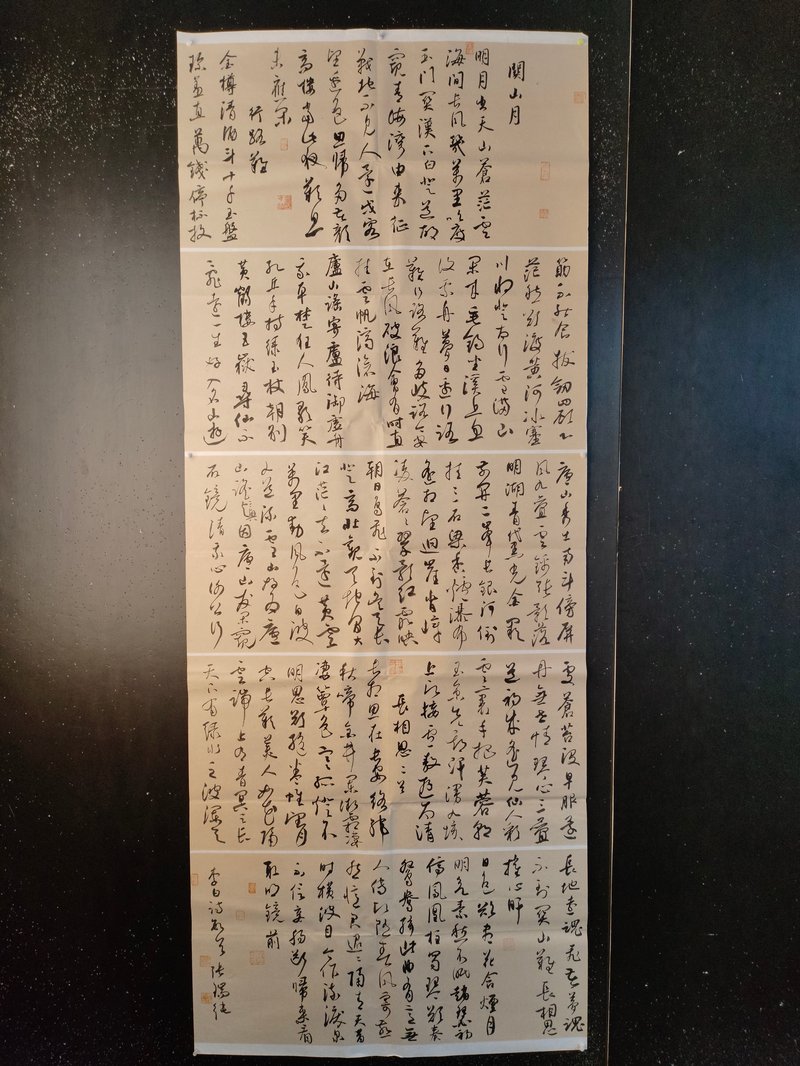 關山月
明月出天山蒼茫雲
海間長風幾萬里吹度
玉門關漢下白登道胡
窺青海灣由來征
戰地不見人還戍客
望邊色思歸多苦顏
高樓當此夜歎息
未應閑
行路難
金樽清酒斗十千玉盤
珍羞直萬錢停杯投
筯不能食拔劍四顧心
茫然欲渡黃河冰塞
川將登太行雪滿山
閑來垂釣坐溪上忽
復乘舟夢日邊行路
難行路難多岐路今安
在長風破浪會有時直
挂雲帆濟滄海
廬山謠寄盧侍御虛舟
我本楚狂人鳳歌笑
孔丘手持綠玉杖朝別
黃鶴樓五嶽尋仙不
辭遠一生好入名山遊
廬山秀出南斗傍屏
風九疊雲錦張影落
明湖青黛光金闕
前開二峯長銀河倒
挂三石梁香爐瀑布
遙相望迴崖沓嶂
凌蒼〻翠影紅霞映
朝日鳥飛不到吳天長
登高壯觀天地間大
江茫〻去不還黃雲
萬里動風色白波
九道流雪山好為廬
山謠興因廬山發閑窺
石鏡清我心謝公行
處蒼苔沒早服還
丹無世情琴心三疊
道初成遙見仙人彩
雲裏手把芙蓉朝
玉京先期汗漫九垓
上願接盧敖遊太清
長相思二首
長相思在長安絡緯
秋啼金井闌微霜淒
淒簟色寒孤燈不
明思欲絕卷帷望月
空長歎美人如花隔
雲端上有青冥之長
天下有淥水之波瀾天
長地遠魂飛苦夢魂
不到關山難長相思
摧心肝
日色欲盡花含煙月
明如素愁不眠趙瑟初
停鳳凰柱蜀琴欲奏
鴛鴦絃此曲有意無
人傳願隨春風寄燕
然憶君迢〻隔青天昔
時橫波目今作流淚泉
不信妾腸斷歸來看
取明鏡前
李白詩數首 張瑞